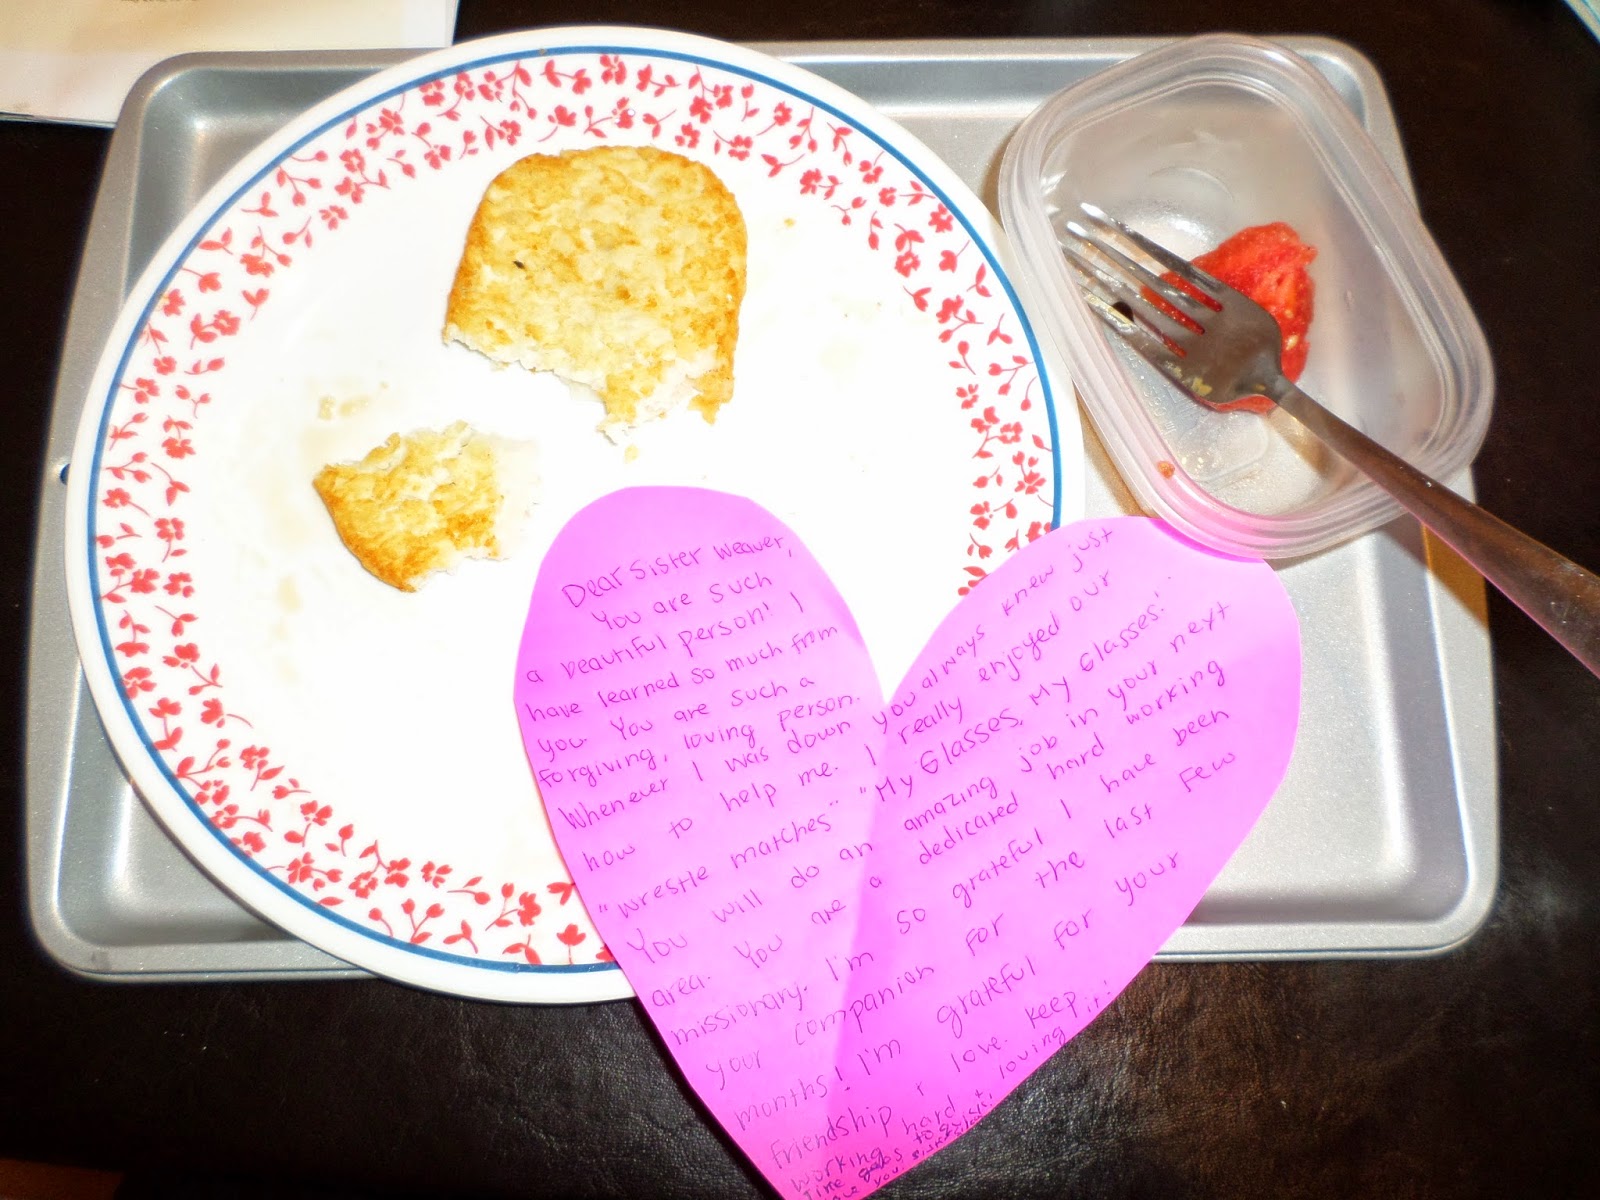 Dear Sister Weaver,
You are such
a beautiful person! I
have learned so much from
you. You are such a
forgiving, loving person.
Whenever I was down you always knew just
how to help me. I really enjoyed our
"wrestle matches" "My Glasses, My Glasses!"
You will do an amazing job in your next
area. You are a dedicated hard working
missionary. I'm so grateful I have been
your companion for the last few
months! I'm grateful for your
friendship & love. Keep
working hard & loving it!
Time goes to fast!
you